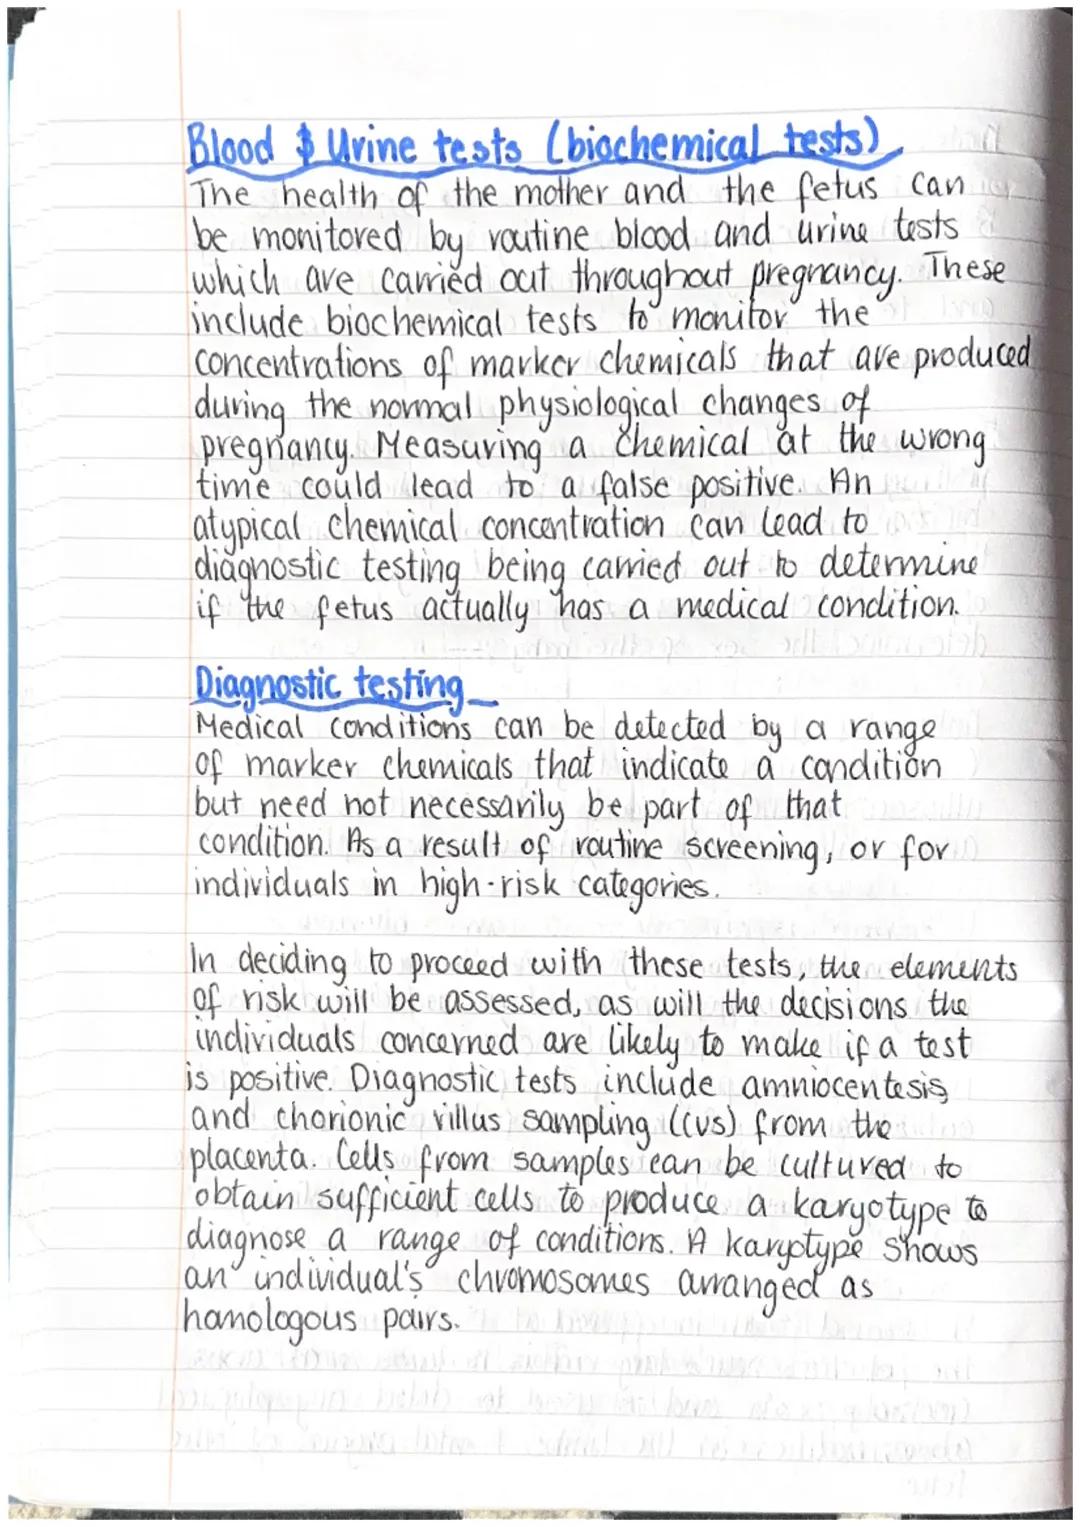 Blood & Urine tests (biochemical tests)
The health of the mother and the fetus can
be monitored by routine blood and urine tests
which are carried out throughout pregnancy. These
include biochemical tests to monitor the
concentrations of marker chemicals that are produced
during the normal physiological changes of
pregnancy. Measuring a chemical at the wrong
time could lead to a false positive. An
atypical chemical concentration can lead to
diagnostic testing being carried out to determine
if the fetus actually has a medical condition.
Diagnostic testing
Medical conditions can be detected by a range
of marker chemicals that indicate a condition
but need not necessarily be part of that
condition. As a result of routine screening, or for
individuals in high-risk categories.
In deciding to proceed with these tests, the elements
of risk will be assessed, as will the decisions the
individuals concerned are likely to make if a test
is positive. Diagnostic tests include amniocentesis
and chorionic villus sampling (CVS) from the
placenta. Cells from samples can be cultured to
obtain sufficient cells to produce a karyotype to
diagnose a range of conditions. A karyotype shows
an individual's chromosomes arranged as
homologous pairs.